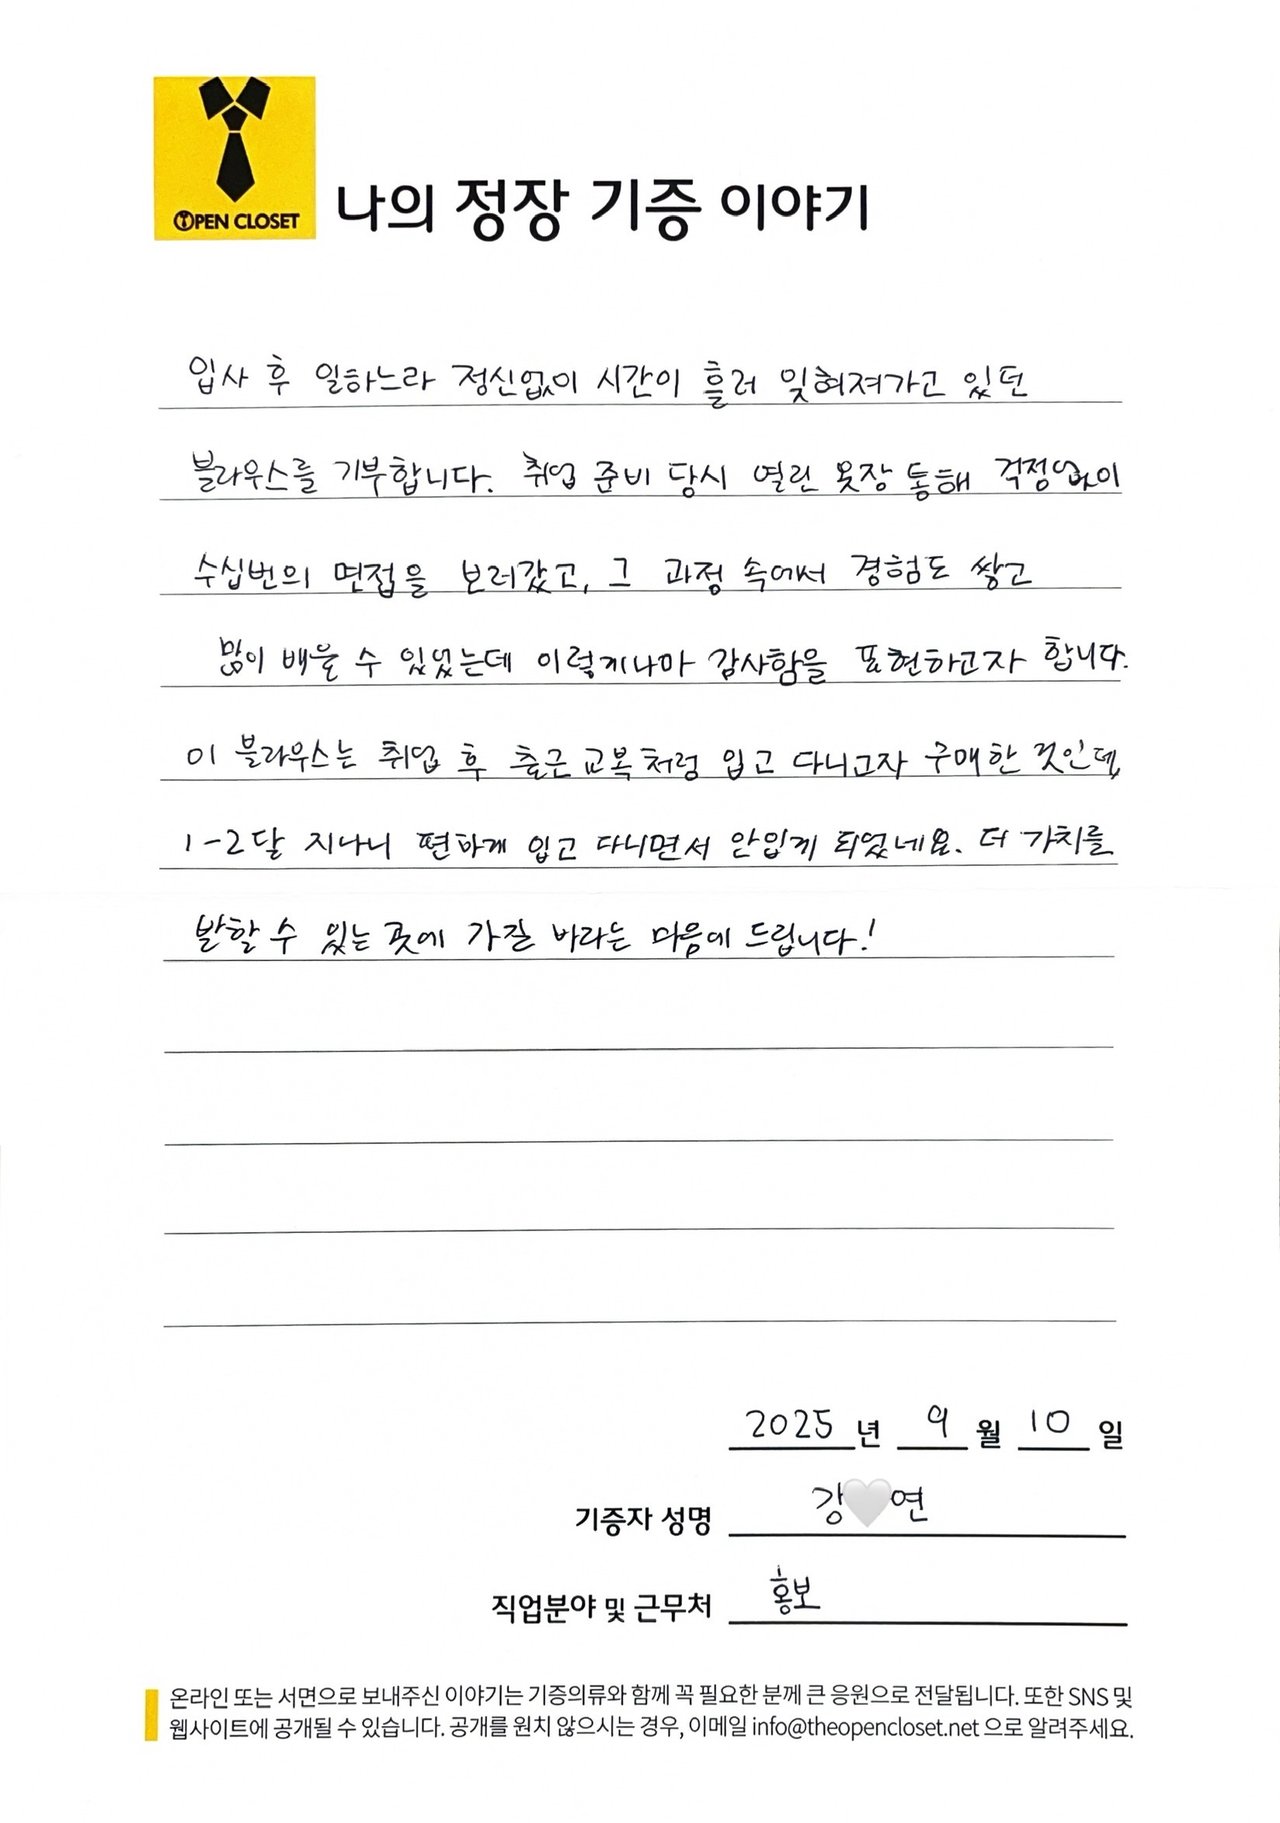 OPEN CLOSET
나의 정장 기증 이야기
입사 후 일하느라 정신없이 시간이 흘러 잊혀져가고 있던
블라우스를 기부합니다. 취업 준비 당시 열린 옷장 통해 걱정없이
수십번의 면접을 보러갔고, 그 과정 속에서 경험도 쌓고
많이 배울 수 있었는데 이렇게나마 감사함을 표현하고자 합니다.
이 블라우스는 취업 후 출근 교복처럼 입고 다니고자 구매한 것인데,
1-2달 지나니 편하게 입고 다니면서 안입게 되었네요. 더 가치를
발할 수 있는 곳에 가길 바라는 마음에 드립니다!
2025 년 9 월 10 일
기증자 성명 강🤍연
직업분야 및 근무처 홍보
온라인 또는 서면으로 보내주신 이야기는 기증의류와 함께 꼭 필요한 분께 큰 응원으로 전달됩니다. 또한 SNS 및
웹사이트에 공개될 수 있습니다. 공개를 원치 않으시는 경우, 이메일 info@theopencloset.net 으로 알려주세요.